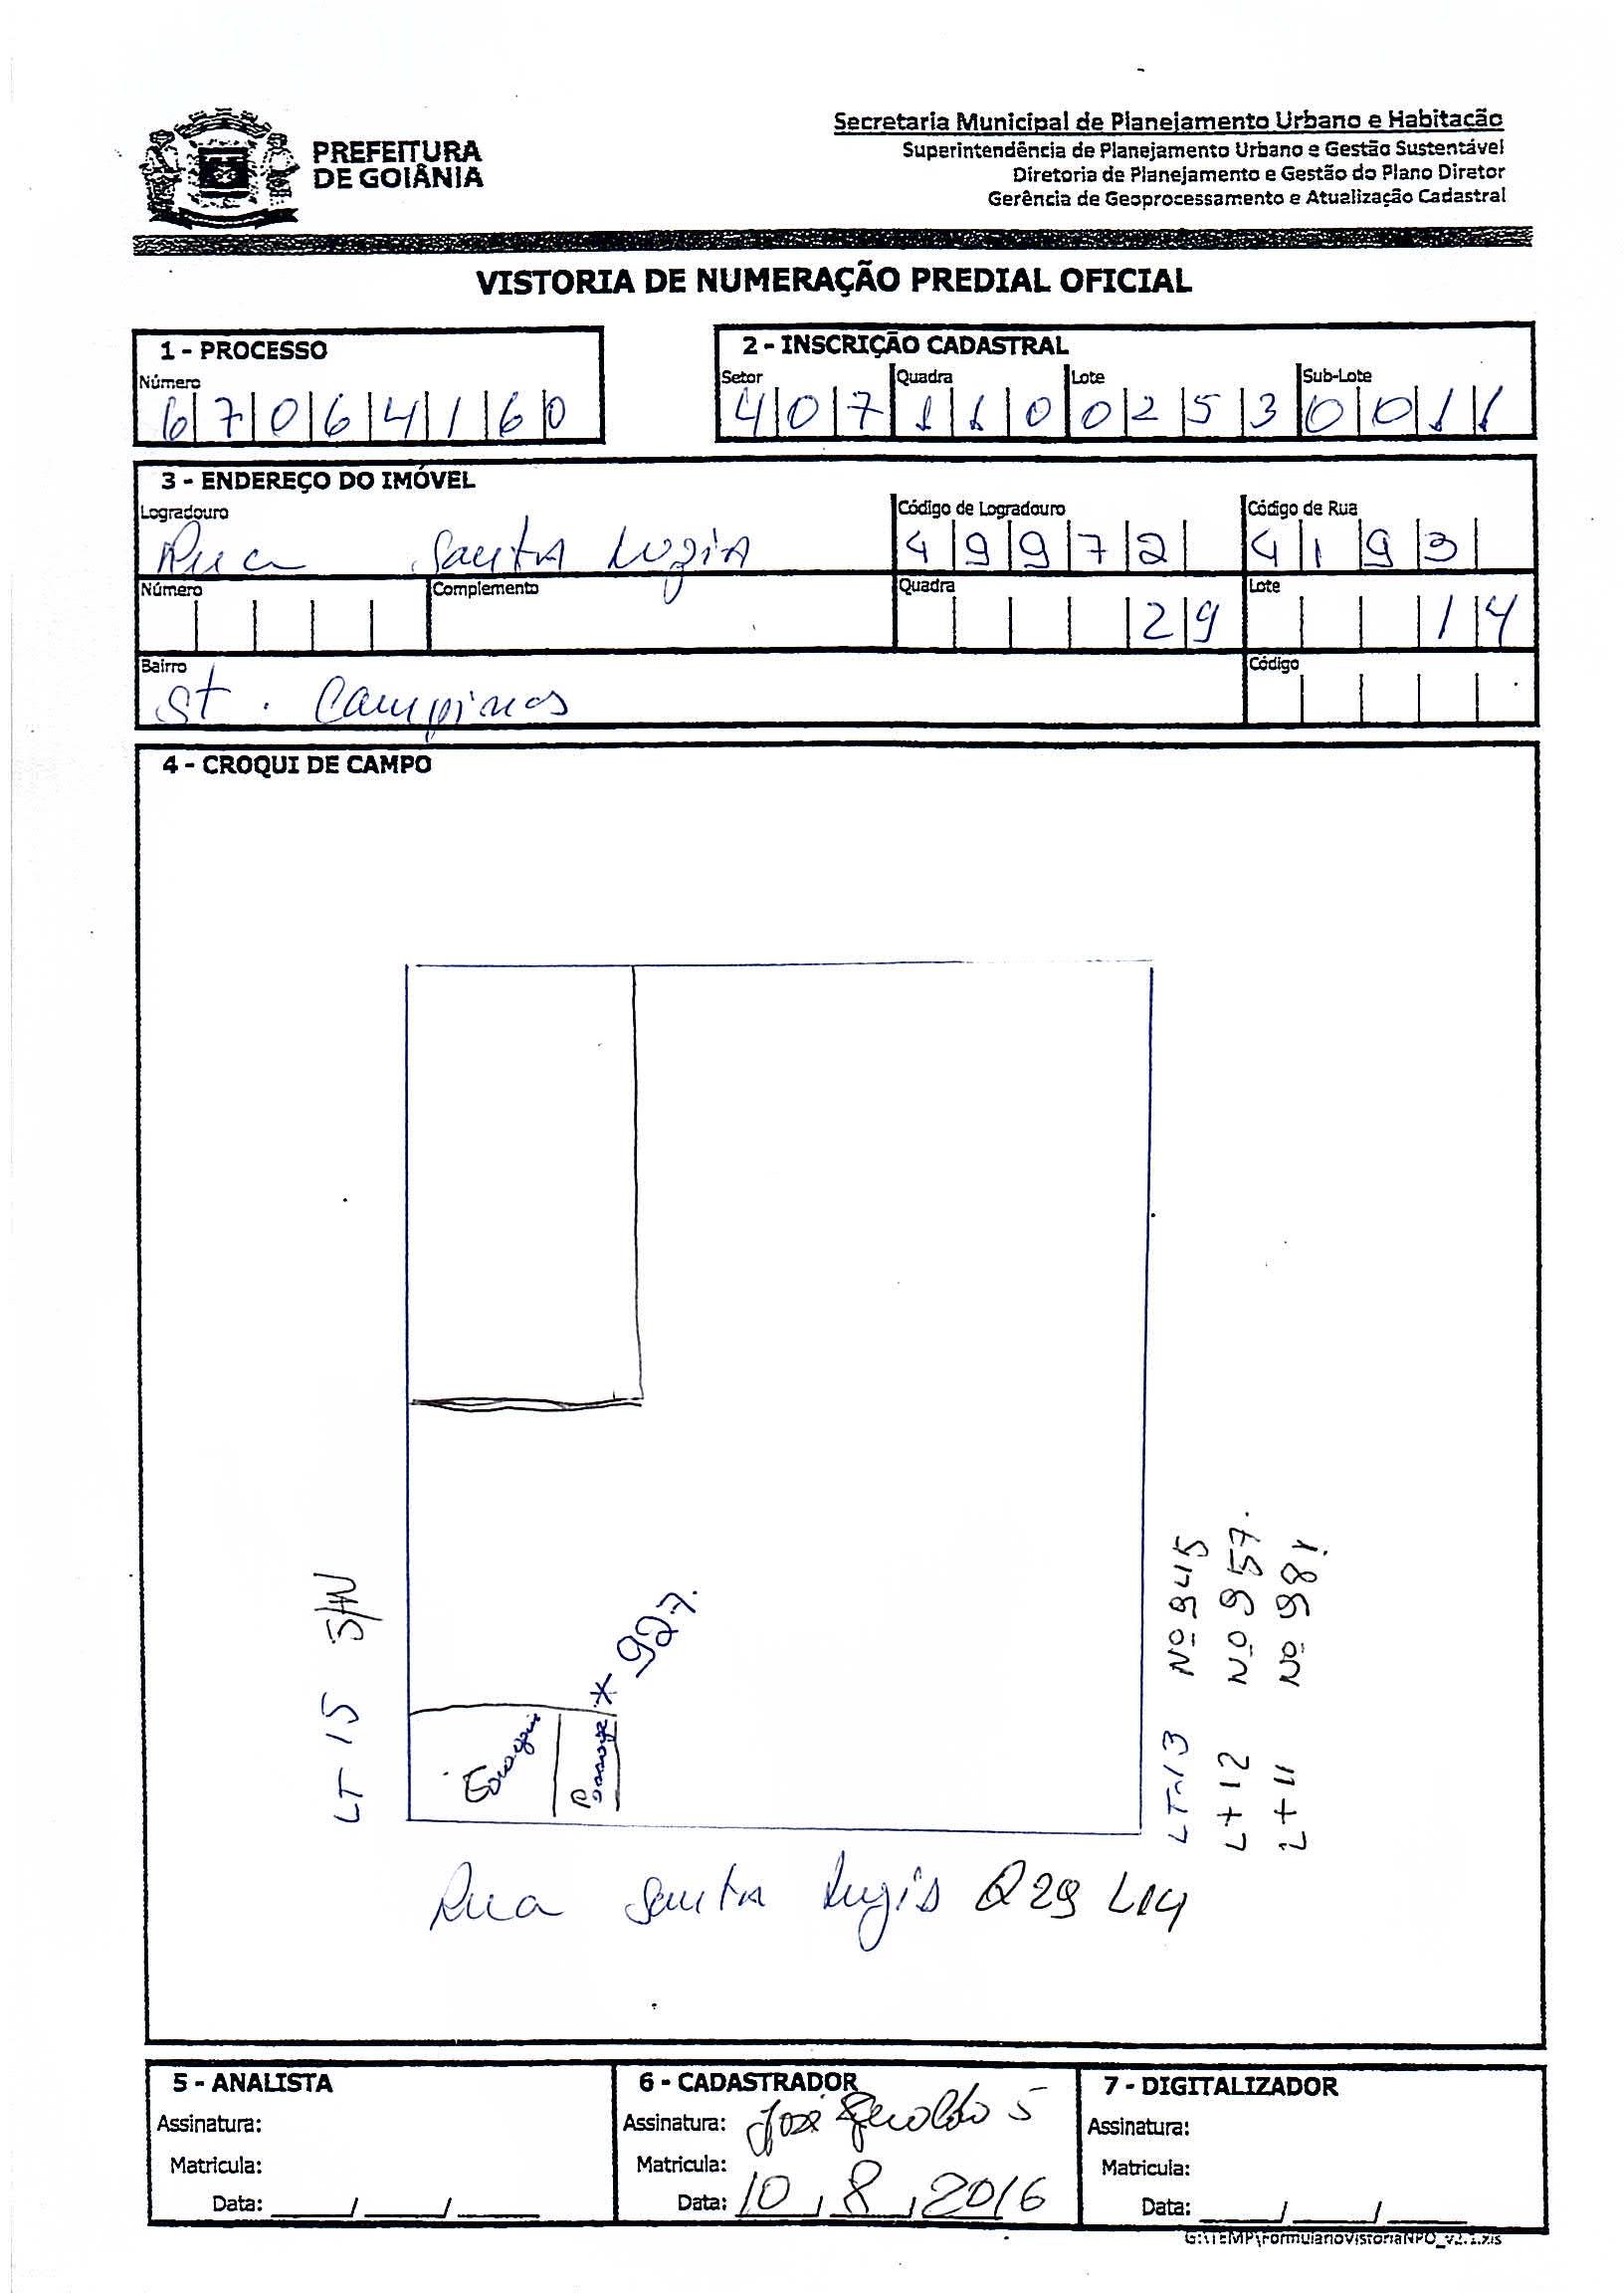 PREFEITURA
DE GOIÂNIA
Secretaria Municipal de Planejamento Urbano e Habitação
Superintendência de Planejamento Urbano e Gestão Sustentável
Diretoria de Planejamento e Gestão do Plano Diretor
Gerência de Geoprocessamento e Atualização Cadastral
VISTORIA DE NUMERAÇÃO PREDIAL OFICIAL
1 - PROCESSO
Número
6 7 0 6 4 1 6 0
2 - INSCRIÇÃO CADASTRAL
Setor Quadra Lote Sub-Lote
4 0 7 1 1 0 0 2 5 3 0 0 1 1
3 - ENDEREÇO DO IMÓVEL
Logradouro Código de Logradouro Código de Rua
Rua Santa Luzia 4 9 9 7 2 4 1 9 3
Número Complemento Quadra Lote
2 9 1 4
Bairro Código
St. Campinas
4 - CROQUI DE CAMPO
LT 15 S/N
* 927.
Garagem
LT-13 Nº 945
Lt 12 Nº 957.
Lt 11 Nº 981.
Rua Santa Luzia Q29 L14
5 - ANALISTA
Assinatura:
Matricula:
Data: / /
6 - CADASTRADOR
Assinatura: José Geraldo S
Matricula:
Data: 10 / 8 / 2016
7 - DIGITALIZADOR
Assinatura:
Matricula:
Data: / /
G:\TEMP\FormularioVistoriaNPO_v2.1.xls